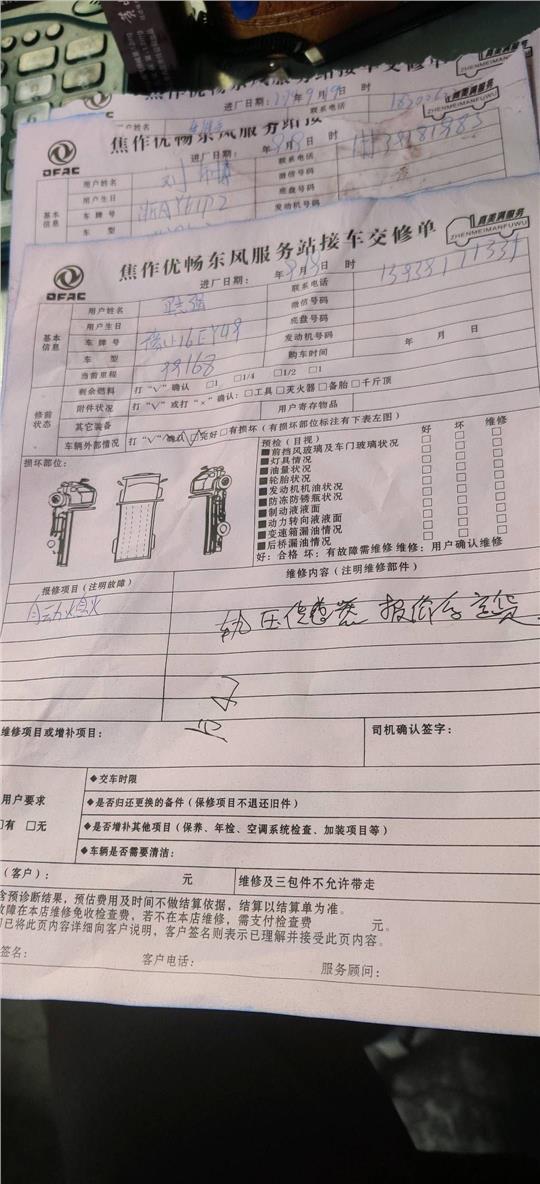 焦作优畅东风服务站接车交修单
真美满服务
ZHENMEIMANFUWU
进厂日期: 年9月9日 时
联系电话
用户姓名
焦作优畅东风服务站接
ZHENMEIMANFUWU
DFAC
进厂日期: 年9月8日 时
联系电话
用户姓名 刘
微信号码
用户生日
底盘号码
基本信息
车牌号
发动机号码
车型
焦作优畅东风服务站接车交修单
真美满服务
ZHENMEIMANFUWU
DFAC
进厂日期: 年9月8日 时
联系电话
用户姓名
微信号码
用户生日
底盘号码
基本信息
车牌号
发动机号码
车型
购车时间 年 月 日
当前里程 99168
修前状态
剩余燃料 打“√”确认 □1 □1/4 □1/2 □1
附件状况 打“√”或打“×”确认: □工具□灭火器□备胎□千斤顶
其它装备
用户寄存物品
车辆外部情况 打“√”确认 □完好□有损坏(有损坏部位标注有下表左图)
损坏部位:
预检(目视) 好 坏 维修
■前挡风玻璃及车门玻璃状况 □ □ □
■灯具情况 □ □ □
■油量状况 □ □ □
■轮胎状况 □ □ □
■发动机机油状况 □ □ □
■防冻防锈瓶状况 □ □ □
■制动液液面 □ □ □
■动力转向液液面 □ □ □
■变速箱漏油情况 □ □ □
■后桥漏油情况 □ □ □
好: 合格 坏: 有故障需维修 维修: 用户确认维修
报修项目(注明故障)
维修内容(注明维修部件)
自动熄火
轨压传感器 报价今定货
维修项目或增补项目:
司机确认签字:
用户要求
□有 □无
◆交车时限
◆是否归还更换的备件(保修项目不退还旧件)
◆是否增补其他项目(保养、年检、空调系统检查、加装项目等)
◆车辆是否需要清洁:
(客户): 元
维修及三包件不允许带走
含预诊断结果, 预估费用及时间不做结算依据, 结算以结算单为准。
故障在本店维修免收检查费, 若不在本店维修, 需支付检查费 元。
已将此页内容详细向客户说明, 客户签名则表示已理解并接受此页内容。
签名:
客户电话:
服务顾问: